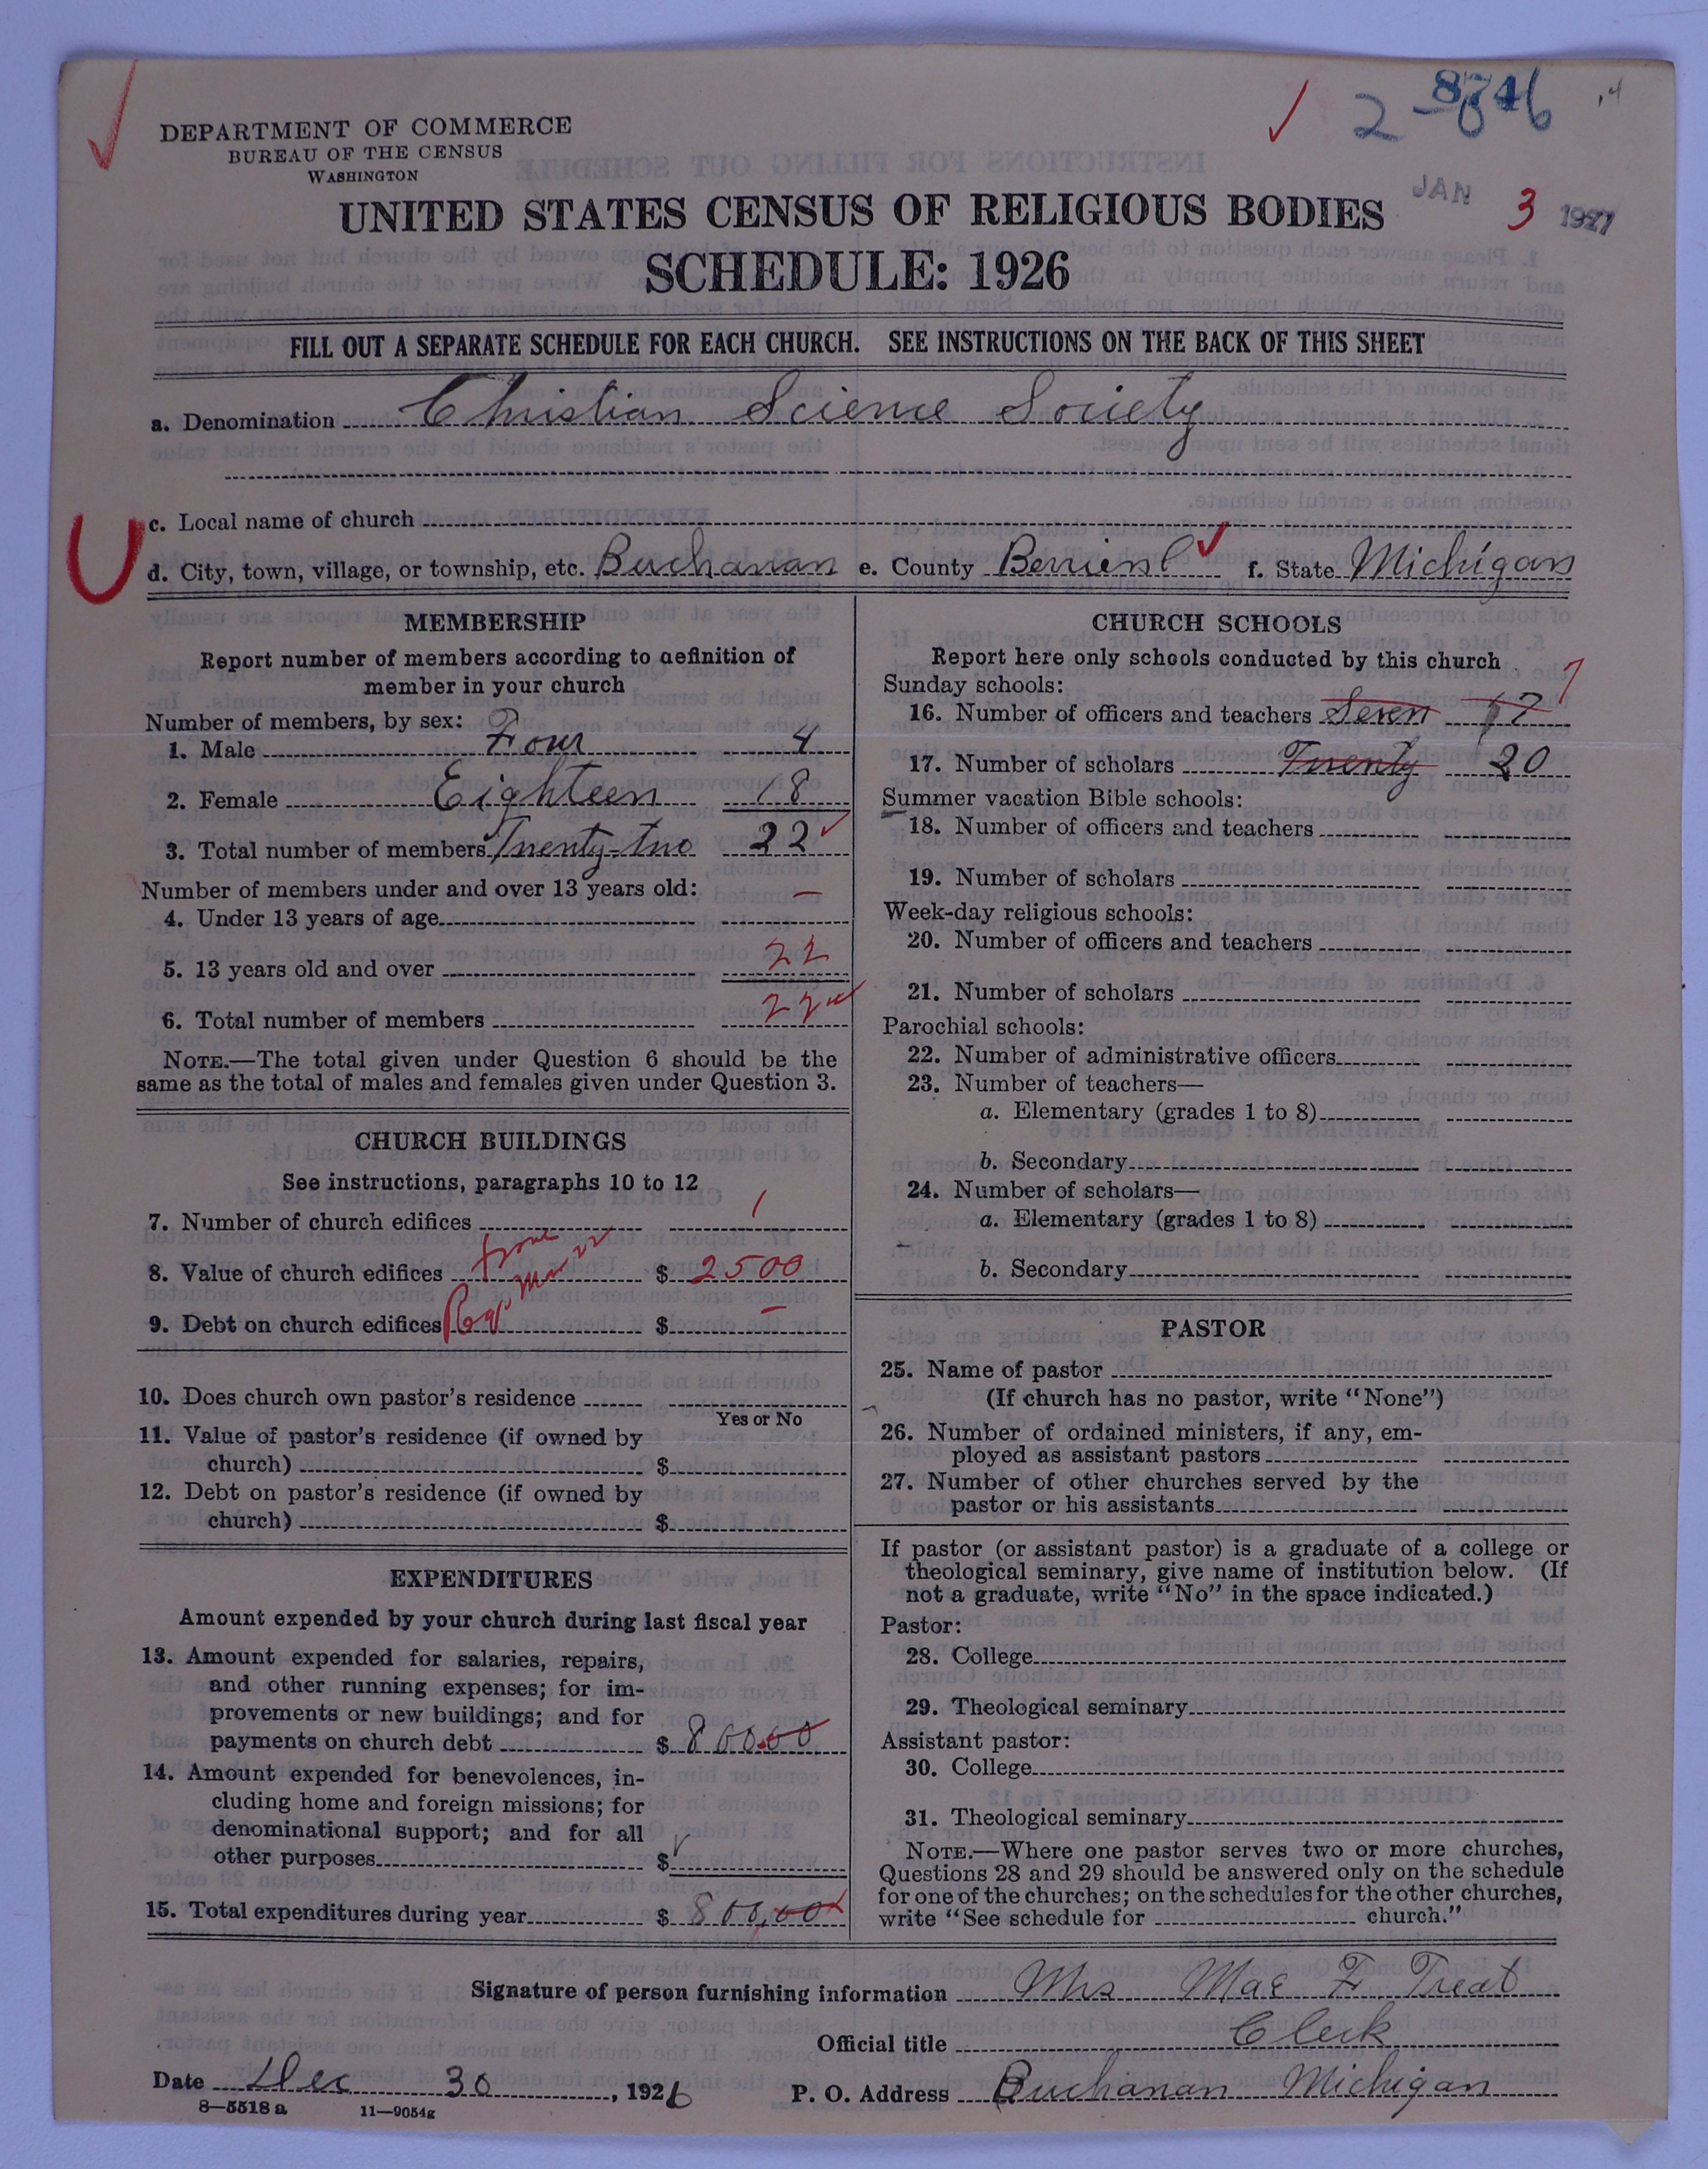 2 8746
DEPARTMENT OF COMMERCE
BUREAU OF THE CENSUS
WASHINGTON
JAN 3 1927
UNITED STATES CENSUS OF RELIGIOUS BODIES
SCHEDULE: 1926
FILL OUT A SEPARATE SCHEDULE FOR EACH CHURCH. SEE INSTRUCTIONS ON THE BACK OF THIS SHEET
a. Denomination Christian Science Society
c. Local name of church
d. City, town, village, or township, etc. Buchanan e. County Berrien f. State Michigan
MEMBERSHIP
Report number of members according to definition of
member in your church
Number of members, by sex:
1. Male Four 4
2. Female Eighteen 18
3. Total number of members Twenty-two 22
Number of members under and over 13 years old:
4. Under 13 years of age —
5. 13 years old and over 22
6. Total number of members 22
NOTE.—The total given under Question 6 should be the
same as the total of males and females given under Question 3.
CHURCH BUILDINGS
See instructions, paragraphs 10 to 12
7. Number of church edifices 1
8. Value of church edifices $ 2500
9. Debt on church edifices $ —
10. Does church own pastor's residence
Yes or No
11. Value of pastor's residence (if owned by
church) $
12. Debt on pastor's residence (if owned by
church) $
EXPENDITURES
Amount expended by your church during last fiscal year
13. Amount expended for salaries, repairs,
and other running expenses; for im-
provements or new buildings; and for
payments on church debt $ 800.00
14. Amount expended for benevolences, in-
cluding home and foreign missions; for
denominational support; and for all
other purposes $
15. Total expenditures during year $ 800.00
CHURCH SCHOOLS
Report here only schools conducted by this church
Sunday schools:
16. Number of officers and teachers Seven 17 7
17. Number of scholars Twenty 20
Summer vacation Bible schools:
18. Number of officers and teachers
19. Number of scholars
Week-day religious schools:
20. Number of officers and teachers
21. Number of scholars
Parochial schools:
22. Number of administrative officers
23. Number of teachers—
a. Elementary (grades 1 to 8)
b. Secondary
24. Number of scholars—
a. Elementary (grades 1 to 8)
b. Secondary
PASTOR
25. Name of pastor
(If church has no pastor, write "None")
26. Number of ordained ministers, if any, em-
ployed as assistant pastors
27. Number of other churches served by the
pastor or his assistants
If pastor (or assistant pastor) is a graduate of a college or
theological seminary, give name of institution below. (If
not a graduate, write "No" in the space indicated.)
Pastor:
28. College
29. Theological seminary
Assistant pastor:
30. College
31. Theological seminary
NOTE.—Where one pastor serves two or more churches,
Questions 28 and 29 should be answered only on the schedule
for one of the churches; on the schedules for the other churches,
write "See schedule for church."
Signature of person furnishing information Mrs Mae F. Treat
Official title Clerk
Date Dec 30, 1926 P. O. Address Buchanan Michigan
8—5518 a 11—9054g